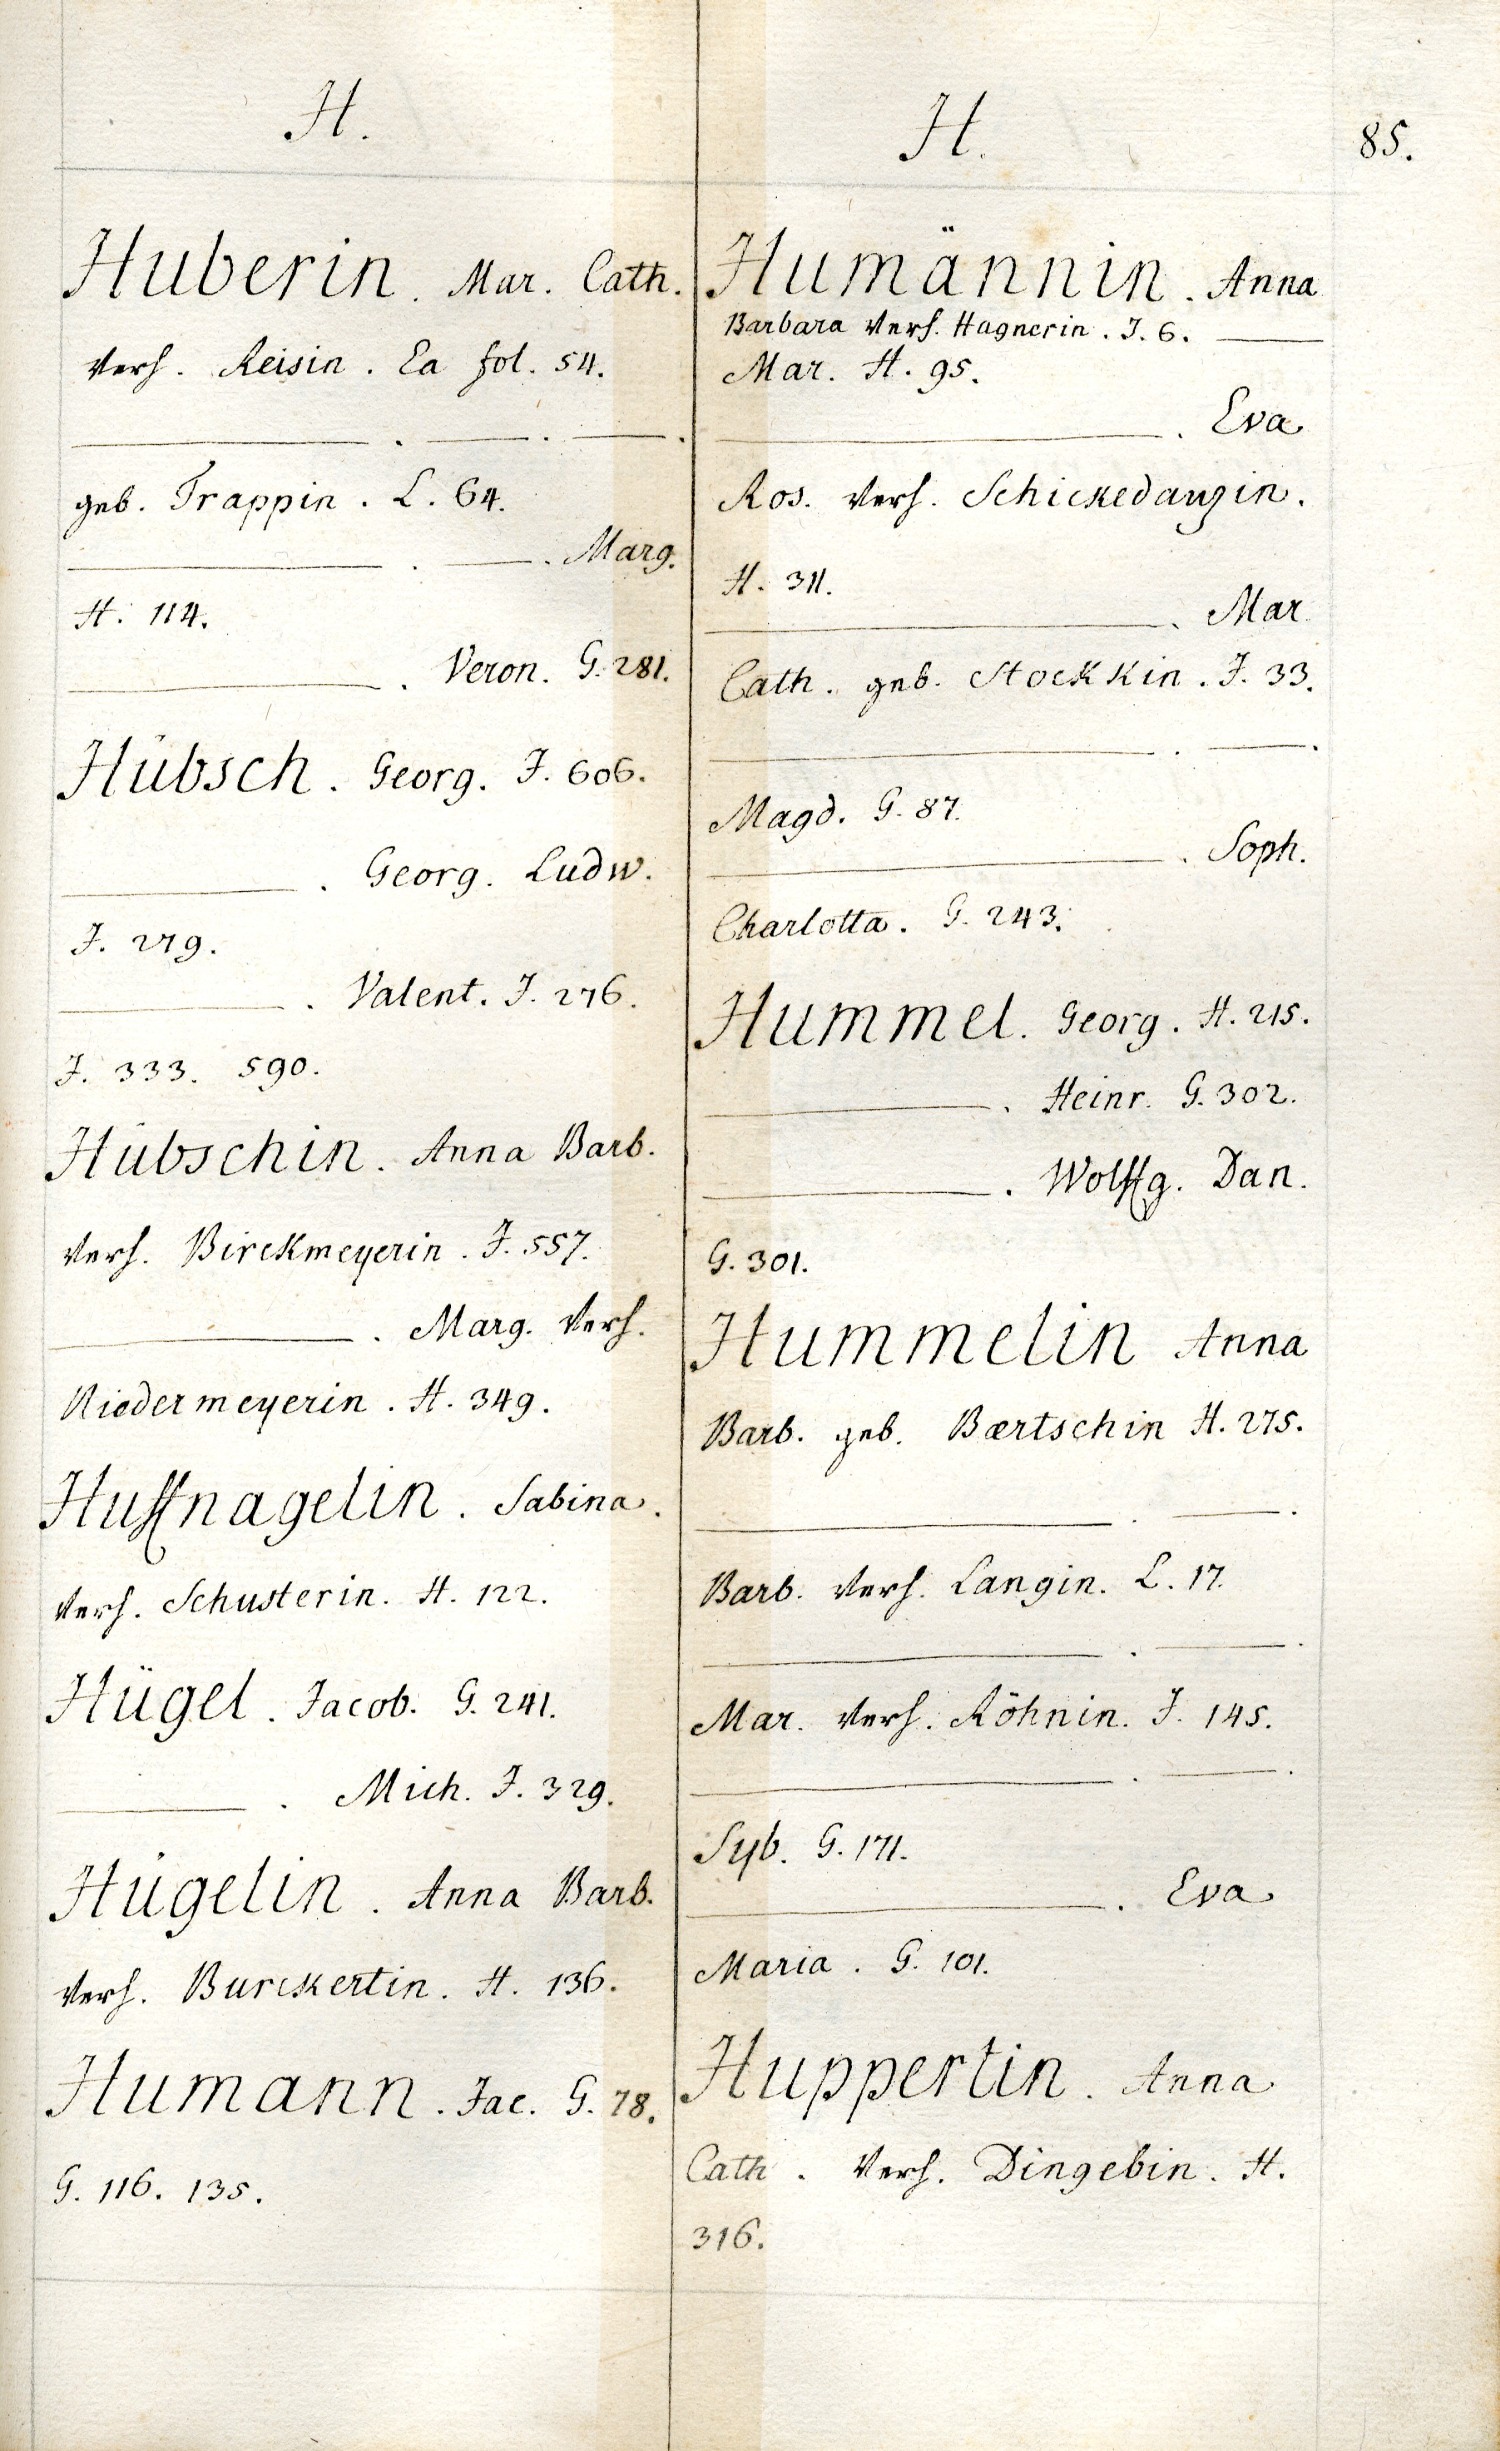 H.
Huberin. Mar. Cath.
verh. Reisin. Ea fol. 54.
———. ——. ——.
geb. Trappin. L. 64.
———. ——. Marg.
H. 114.
———. Veron. G. 281.
Hübsch. Georg. J. 606.
———. Georg. Ludw.
J. 279.
———. Valent. J. 276.
J. 333. 590.
Hübschin. Anna Barb.
verh. Birckmeyerin. J. 557.
———. Marg. verh.
Niedermeyerin. H. 349.
Huffnagelin. Sabina.
verh. Schusterin. H. 122.
Hügel. Jacob. G. 241.
———. Mich. J. 329.
Hügelin. Anna Barb.
verh. Burckertin. H. 136.
Humann. Jac. G. 78.
G. 116. 135.
H.
85.
Humännin. Anna
Barbara verh. Hagnerin. J. 6. ——
Mar. H. 95.
———. Eva
Ros. verh. Schickedanzin.
H. 311.
———. Mar.
Cath. geb. Stockkin. J. 33.
———. ——.
Magd. G. 87.
———. Soph.
Charlotta. G. 243.
Hummel. Georg. H. 215.
———. Heinr. G. 302.
———. Wolffg. Dan.
G. 301.
Hummelin Anna
Barb. geb. Bærtschin H. 275.
———. ——.
Barb. verh. Langin. L. 17.
———. ——.
Mar. verh. Röhnin. J. 145.
———. ——.
Syb. G. 171.
———. Eva
Maria. G. 101.
Huppertin. Anna
Cath. verh. Dingebin. H.
316.